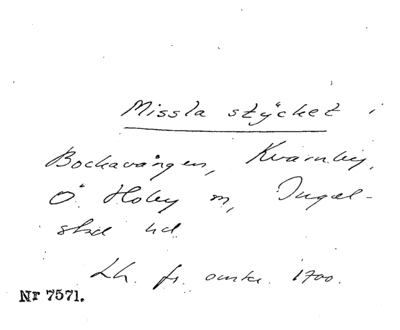 Missla stycket i
Bockavången, Kvarnby,
Ö Hoby sn, Ingel-
stad hd
Lh. fr. omkr. 1700.
Nr 7571.